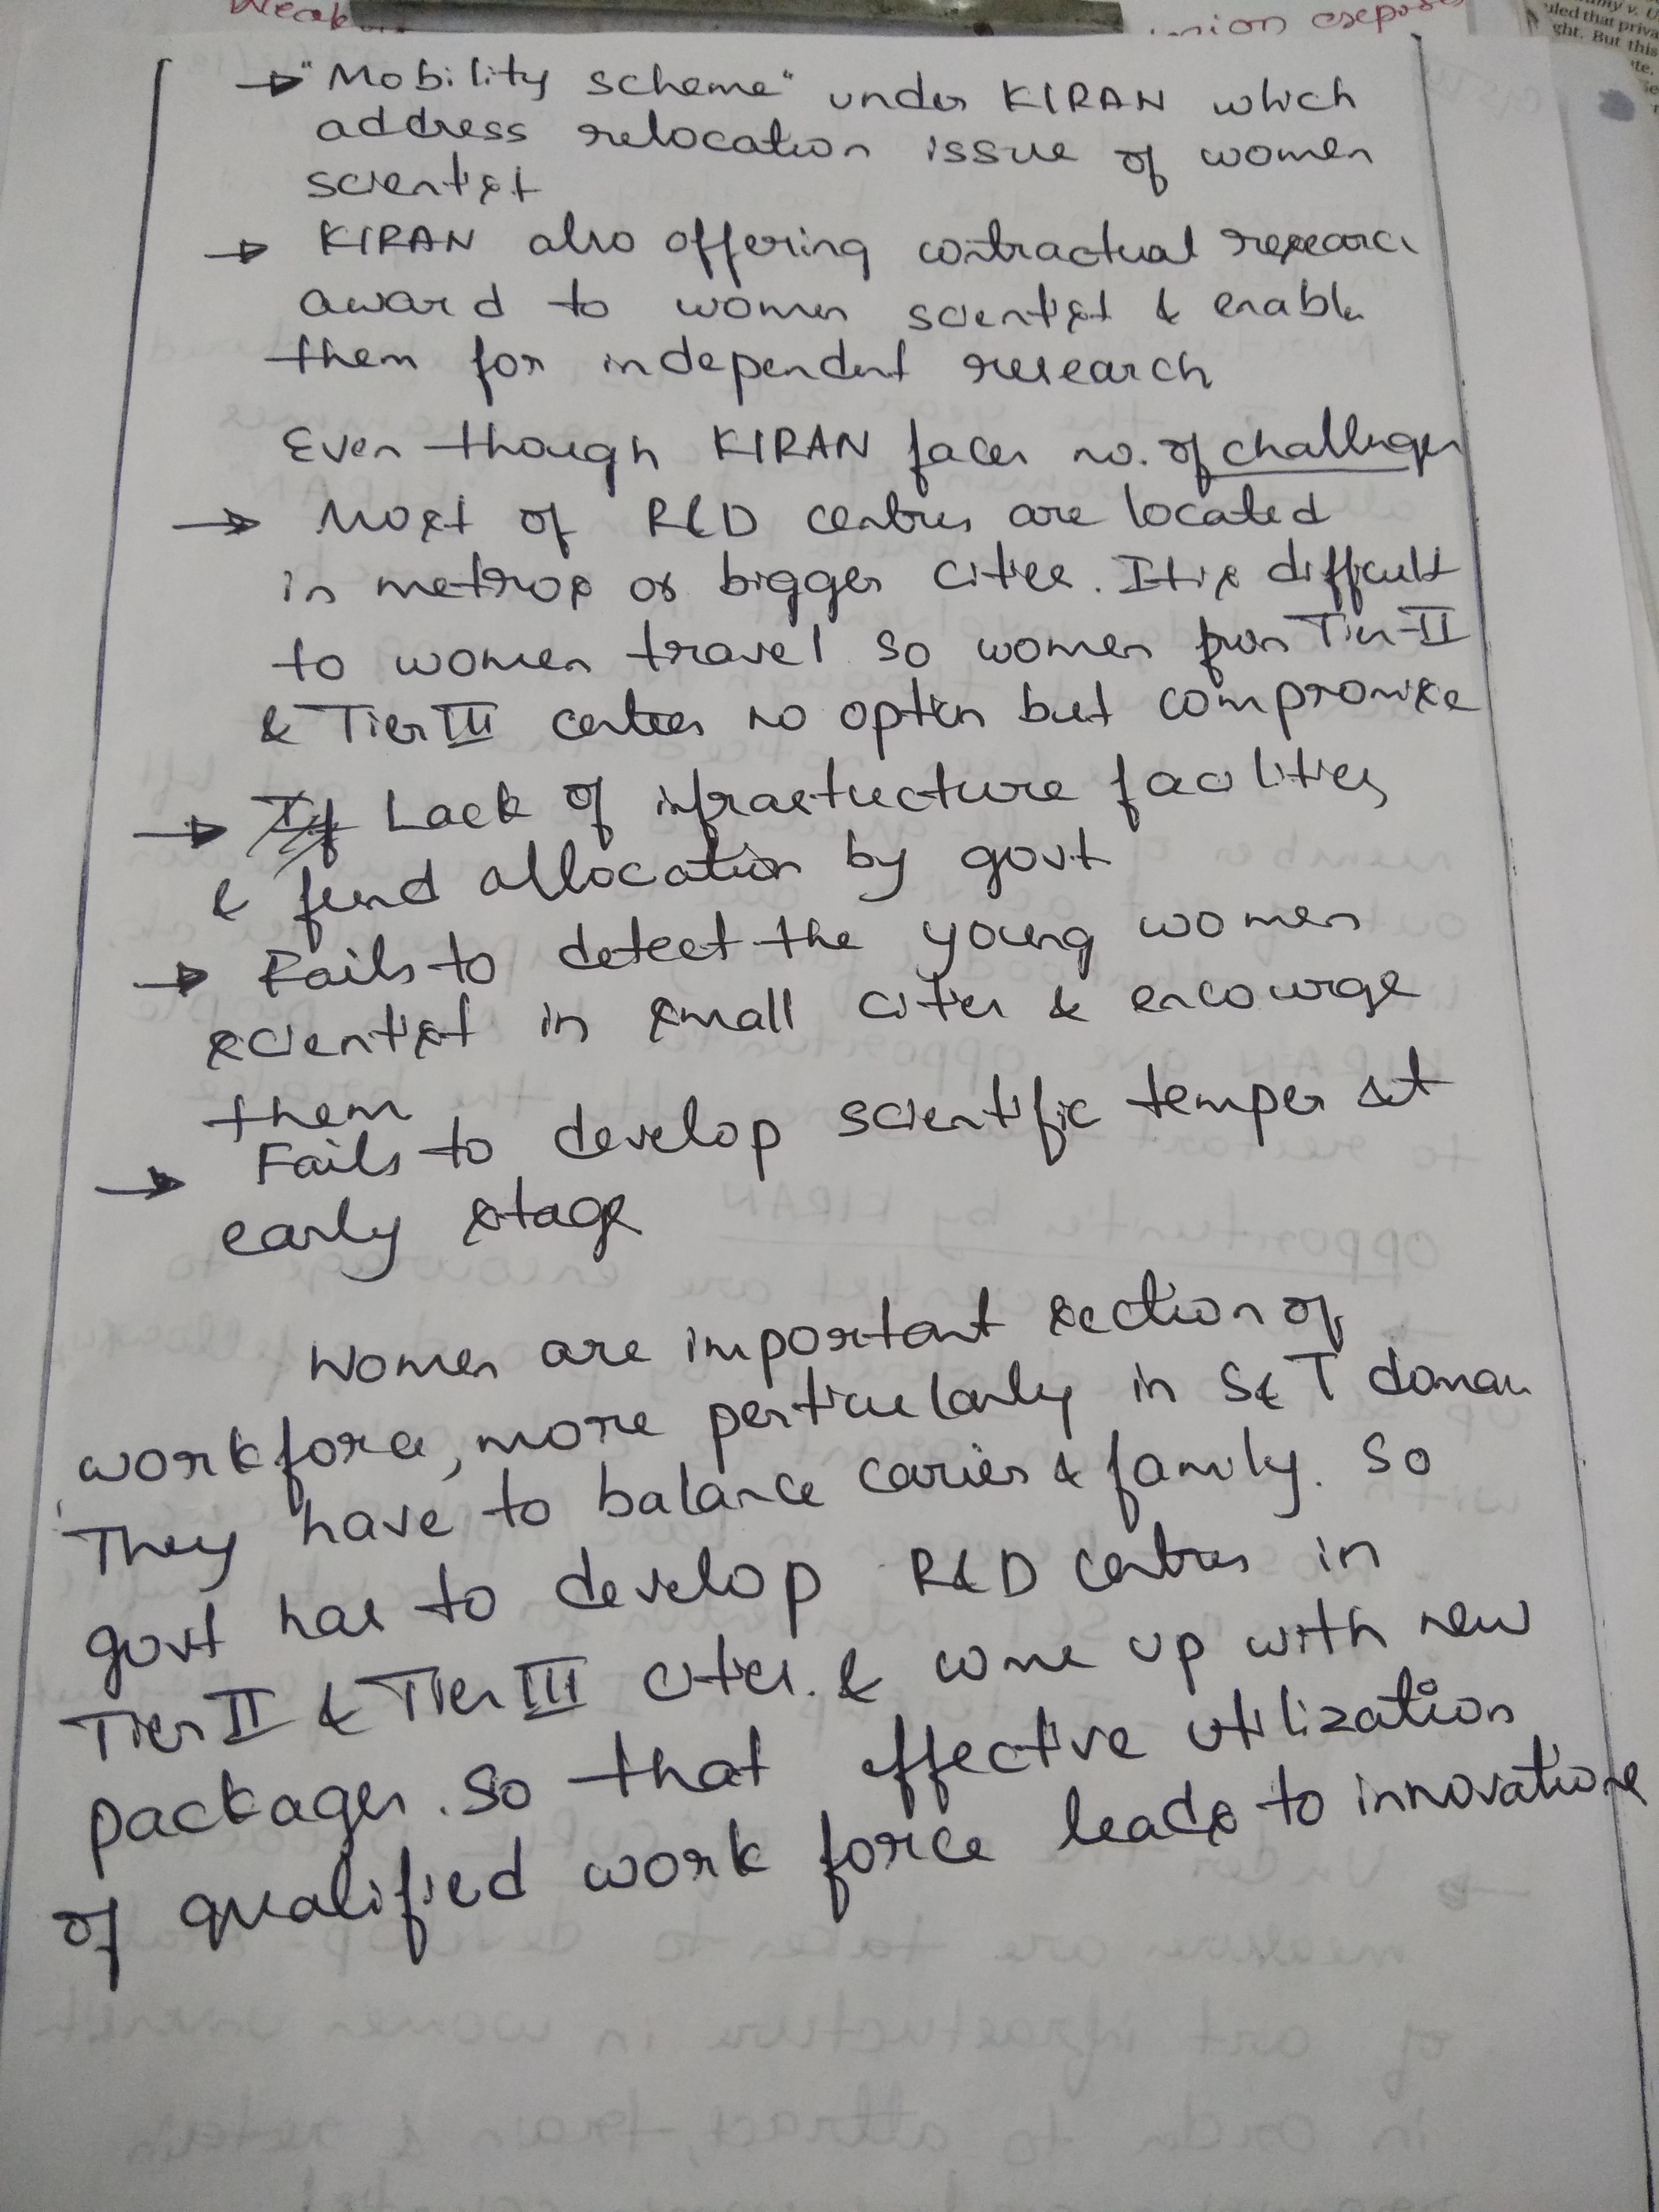 Weak
nion expos
my v. U
uled that priva
ght. But this
→ "Mobility scheme" under KIRAN which
address relocation issue of women
scientist
→ KIRAN also offering contractual research
award to women scientist & enable
them for independent research
Even though KIRAN faces no. of challenges
→ Most of R&D centres are located
in metros or bigger cities. It is difficult
to women travel so women from Tier-II
& Tier III centres no option but compromise
→ If Lack of infrastructure facilities
& fund allocation by govt
→ Fails to detect the young women
scientist in small cities & encourge
them
→ Fails to develop scientific temper at
early stage
Women are important section of
workforce, more perticularly in S&T domain
They have to balance carier & family. So
govt has to develop R&D centres in
Tier II & Tier III cities. & come up with new
packages. So that effective utilization
of qualified work force leads to innovations